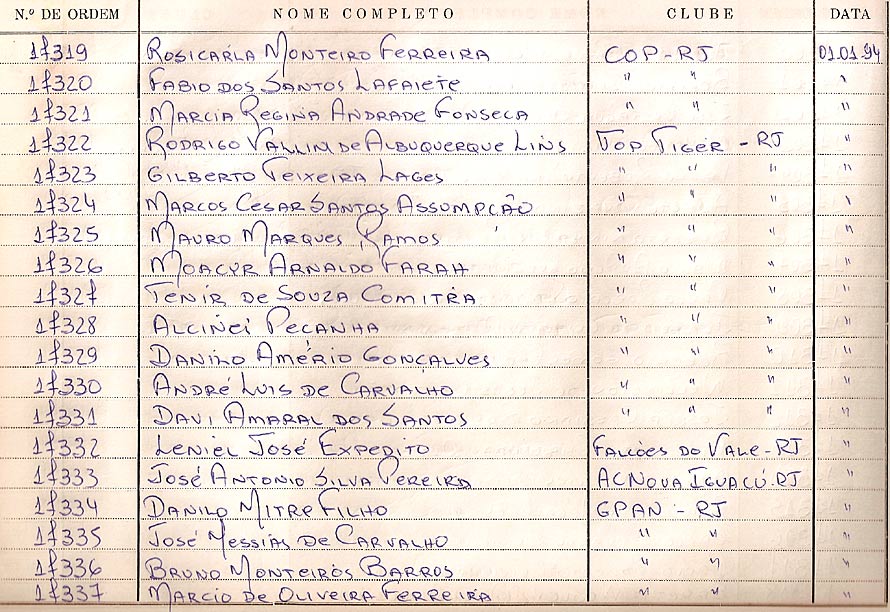 N.º DE ORDEM NOME COMPLETO CLUBE DATA
17319 ROSICARLA MONTEIRO FERREIRA COP-RJ 01.01.94
17320 FABIO DOS SANTOS LAFAIETE " " "
17321 MARCIA REGINA ANDRADE FONSECA " " "
17322 RODRIGO VALLIM DE ALBUQUERQUE LINS TOP TIGER - RJ "
17323 GILBERTO TEIXEIRA LAGES " " " "
17324 MARCOS CESAR SANTOS ASSUMPÇÃO " " " "
17325 MAURO MARQUES RAMOS " " " "
17326 MOACYR ARNALDO FARAH " " " "
17327 TENIR DE SOUZA COMITRA " " " "
17328 ALCINEI PECANHA " " " "
17329 DANILO AMÉRIO GONÇALVES " " " "
17330 ANDRÉ LUIS DE CARVALHO " " " "
17331 DAVI AMARAL DOS SANTOS " " " "
17332 LENIEL JOSÉ EXPEDITO FALCÕES DO VALE-RJ "
17333 JOSÉ ANTONIO SILVA PEREIRA ACNOVA IGUAÇÚ-RJ "
17334 DANILO MITRE FILHO GPAN - RJ "
17335 JOSÉ MESSIAS DE CARVALHO " " "
17336 BRUNO MONTEIROS BARROS " " "
17337 MARCIO DE OLIVEIRA FERREIRA " " "